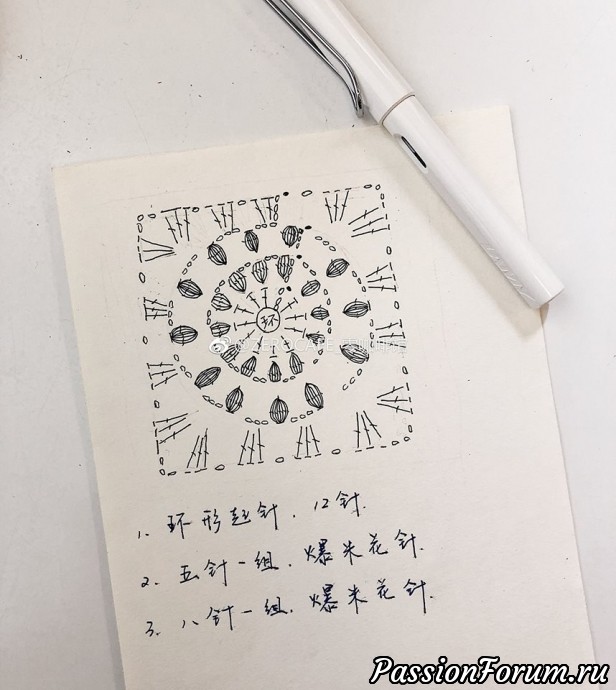 环
1. 环形起针、12针.
2. 五针一组. 爆米花针.
3. 八针一组. 爆米花针.
PassionForum.ru